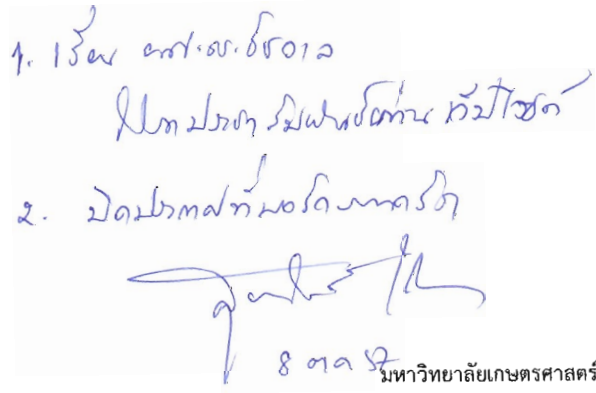 1. เรียน
ประชาสัมพันธ์ผ่านเว็บไซต์
2. ปิดประกาศที่บอร์ดภาควิชา
8 ตค 57
มหาวิทยาลัยเกษตรศาสตร์